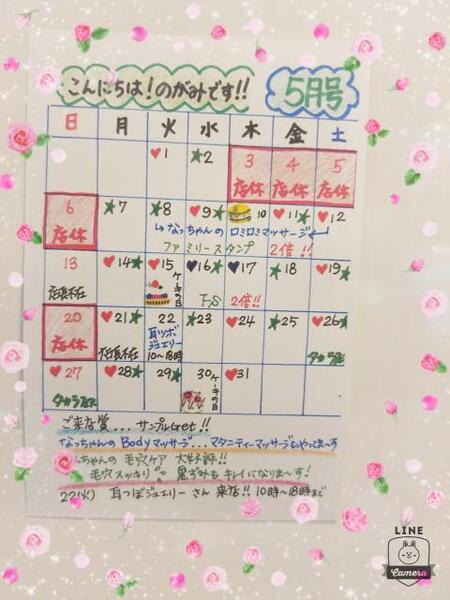 こんにちは!のがみです!!
5月号
日 月 火 水 木 金 土
♥1 ★2 3 4 5
店休 店休 店休
6 ★7 ★8 ♥9★ 10 ♥11★ ♥12
店休
↳なっちゃんの ロミロミマッサージ
ファミリースタンプ 2倍!!
13 ♥14★ ♥15 ♥16★ ♥17 ★18 ♥19★
店長不在 ケーキの日
F,S 2倍!!
20 ♥21★ 22 ★23 ♥24 ★25 ♥26★
店休 店長不在 耳ツボ
ジュエリー
10〜18時
♥27 ♥28★ 29★ 30 ♥31
ケーキの日
ご来店賞... サンプルGet!!
なっちゃんの Bodyマッサージ... マタニティーマッサージもやってま〜す
ちゃんの 毛穴ケア 大好評!!
毛穴スッキリ 黒ずみも キレイになりま〜す!
22(火) 耳つぼジュエリー さん 来店!! 10時〜18時まで
LINE
Camera